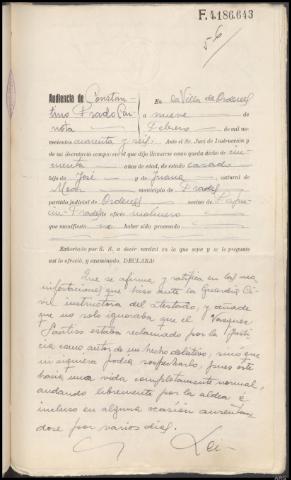 F.4.186.643
56
Audiencia de Constan- En la Villa de Ordenes
tino Prado a nueve de
Febrero de mil no-
vecientos cuarenta y seis. Ante el Sr. Juez de Instrucción y
de mi Secretario compareció el que dijo llamarse como queda dicho de cin-
cuenta años de edad, de estado casado
hijo de José y de Juana, natural de
municipio de Frades
partido judicial de Ordenes vecino de
Frades de oficio molinero
que manifestó no haber sido procesado
Exhortado por S. S. a decir verdad en lo que sepa y se le pregunte
así lo ofreció, y examinado, DECLARA:
Que se afirma y ratifica en las ma-
nifestaciones que hizo ante la Guardia Ci-
vil instructora del atestado, y añade
que no solo ignoraba que el Vazquez
Santiso estaba reclamado por la Justi-
cia como autor de un hecho delictivo, sino que
ni siquiera podía sospecharlo, pues este
hacía una vida completamente normal,
andando libremente por la aldea e
incluso en alguna ocasión ausentan-
dose por varios dias.